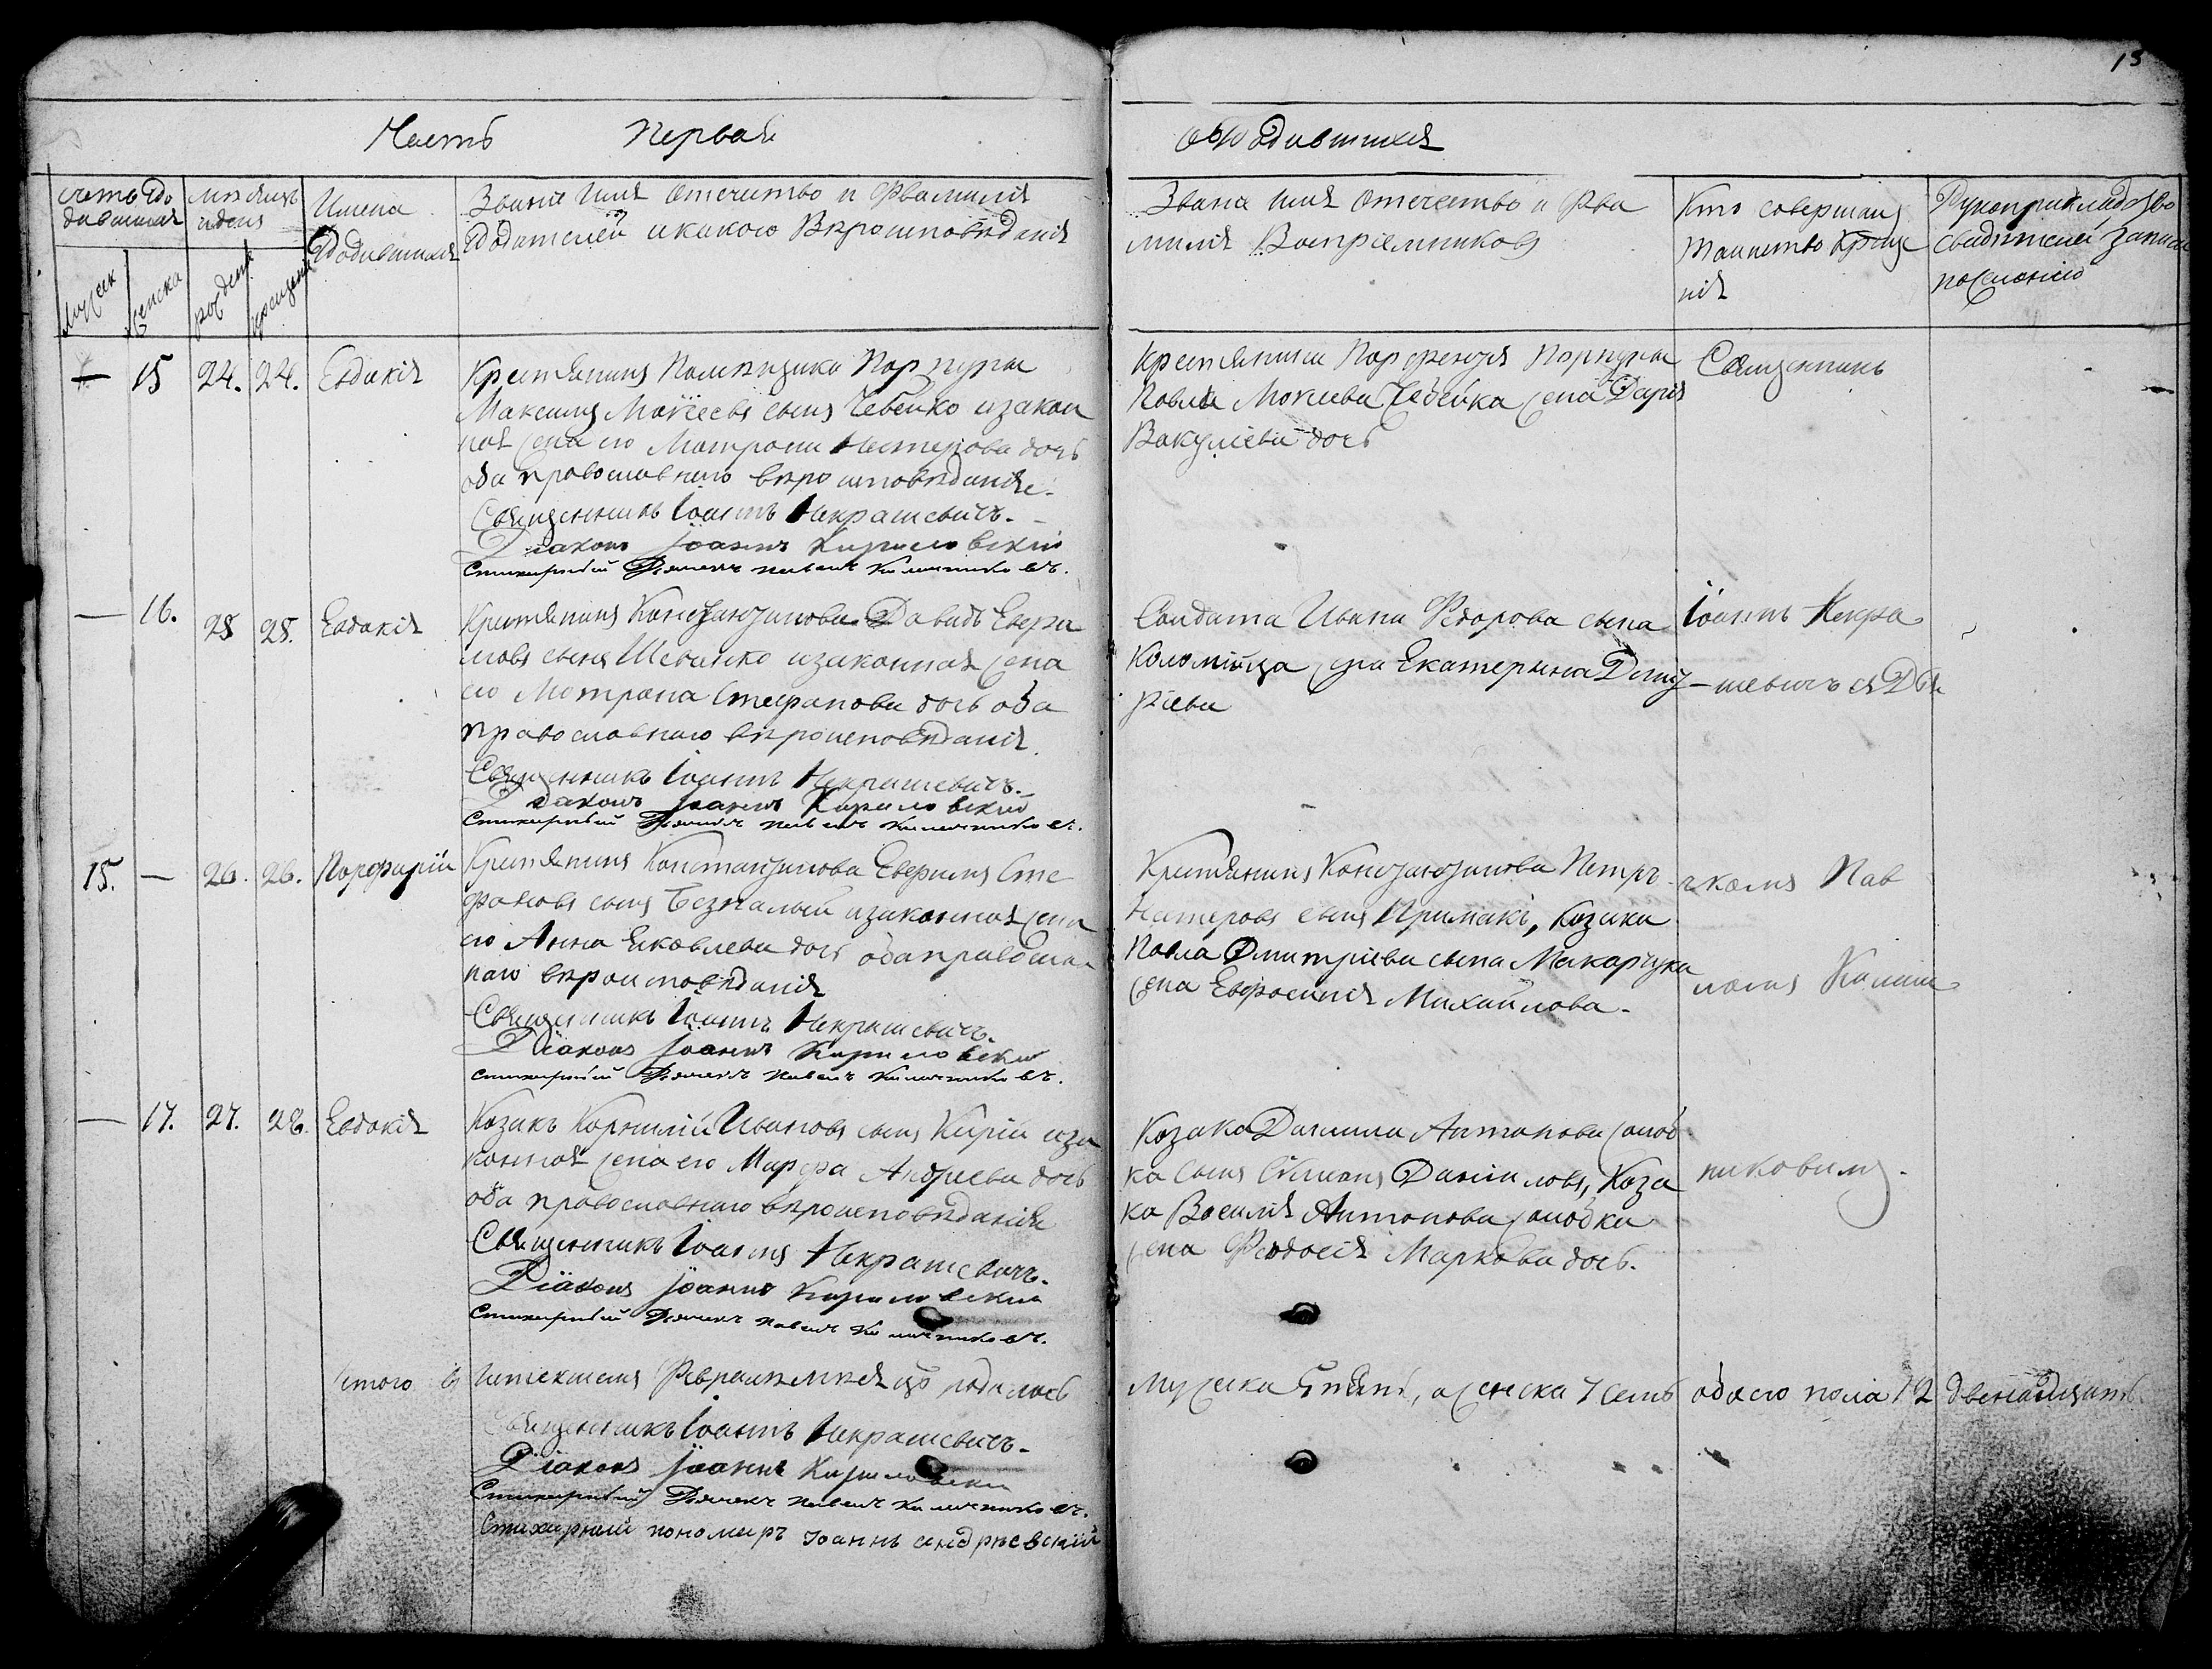 15
Часть Первая
о родившихся
счетъ родившихся
мѣсяцъ и день
Имена родившихся
Званіе Имя Отечество и Фамилія
родителей и какого Вѣроисповѣданія
Званіе Имя Отечество и Фамилія Воспріемниковъ
Кто совершалъ
таинство Креще
нія
Рукоприкладство
свидѣтелей записи
по желанію
мужеск
женска
рожденія
крещенія
— 15 24. 24. Евдокія
Крестьянинъ Помѣщика Порпуры
Максимъ Мокѣевъ сынъ Чебейко и закон
ная жена его Матрона Нестерова дочь
оба православнаго вѣроисповѣданія.
Священникъ Іоаннъ Некрашевичъ.
Діаконъ Іоаннъ Кириловскій
Стихирный Дьячекъ Павелъ Калишниковъ.
Крестьянина Порпуры
Павла Мокиева Чебейка жена Дарія
Вакуліева дочь
Священникъ
— 16. 28 28. Евдокія
Крестьянинъ Констянтинова Давидъ Евфи
мовъ сынъ Шевченко и законная жена
его Мотрона Стефанова дочь оба
православнаго вѣроисповѣданія.
Священникъ Іоаннъ Некрашевичъ.
Діаконъ Іоаннъ Кириловскій
Стихирный Дьячекъ Павелъ Калишниковъ.
Солдата Ивана Ѳедорова сына
Коломійца жена Екатерина Дмит
ріева
Іоаннъ Некра
шевичъ съ Дья
15. — 26. 26. Порфирій
Крестьянинъ Константинова Евфимъ Сте
фановъ сынъ Безпалый и законная жена
его Анна Яковлева дочь оба православ
наго вѣроисповѣданія
Священникъ Іоаннъ Некрашевичъ.
Діаконъ Іоаннъ Кириловскій
Стихирный Дьячекъ Павелъ Калишниковъ.
Крестьянинъ Констянтинова Петръ
Нестеровъ сынъ Примакъ, Козака
Павла Дмитріева сына Макарчука
жена Евфросинія Михайлова.
чкомъ Пав
ломъ Калиш
— 17. 27. 28. Евдокія
Козакъ Корнилій Ивановъ сынъ Кирій и за
конная жена его Марфа Андріева дочь
оба православнаго вѣроисповѣданія
Священникъ Іоаннъ Некрашевичъ.
Діаконъ Іоаннъ Кириловскій
Стихирный Дьячекъ Павелъ Калишниковъ.
Козака Даниила Антонова
ка сынъ Даниловъ, Коза
ка Василія Антонова
жена Феодосія Маркова дочь.
никовымъ.
Итого въ Февралѣ мѣсяцѣ родилось
мужеска 5 пять, а женска 7 семь обоего пола 12 двенадцять
Священникъ Іоаннъ Некрашевичъ.
Діаконъ Іоаннъ Кириловскій
Стихирный Дьячекъ Павелъ Калишниковъ.
Стихирный пономарь Іоаннъ Андріевскій